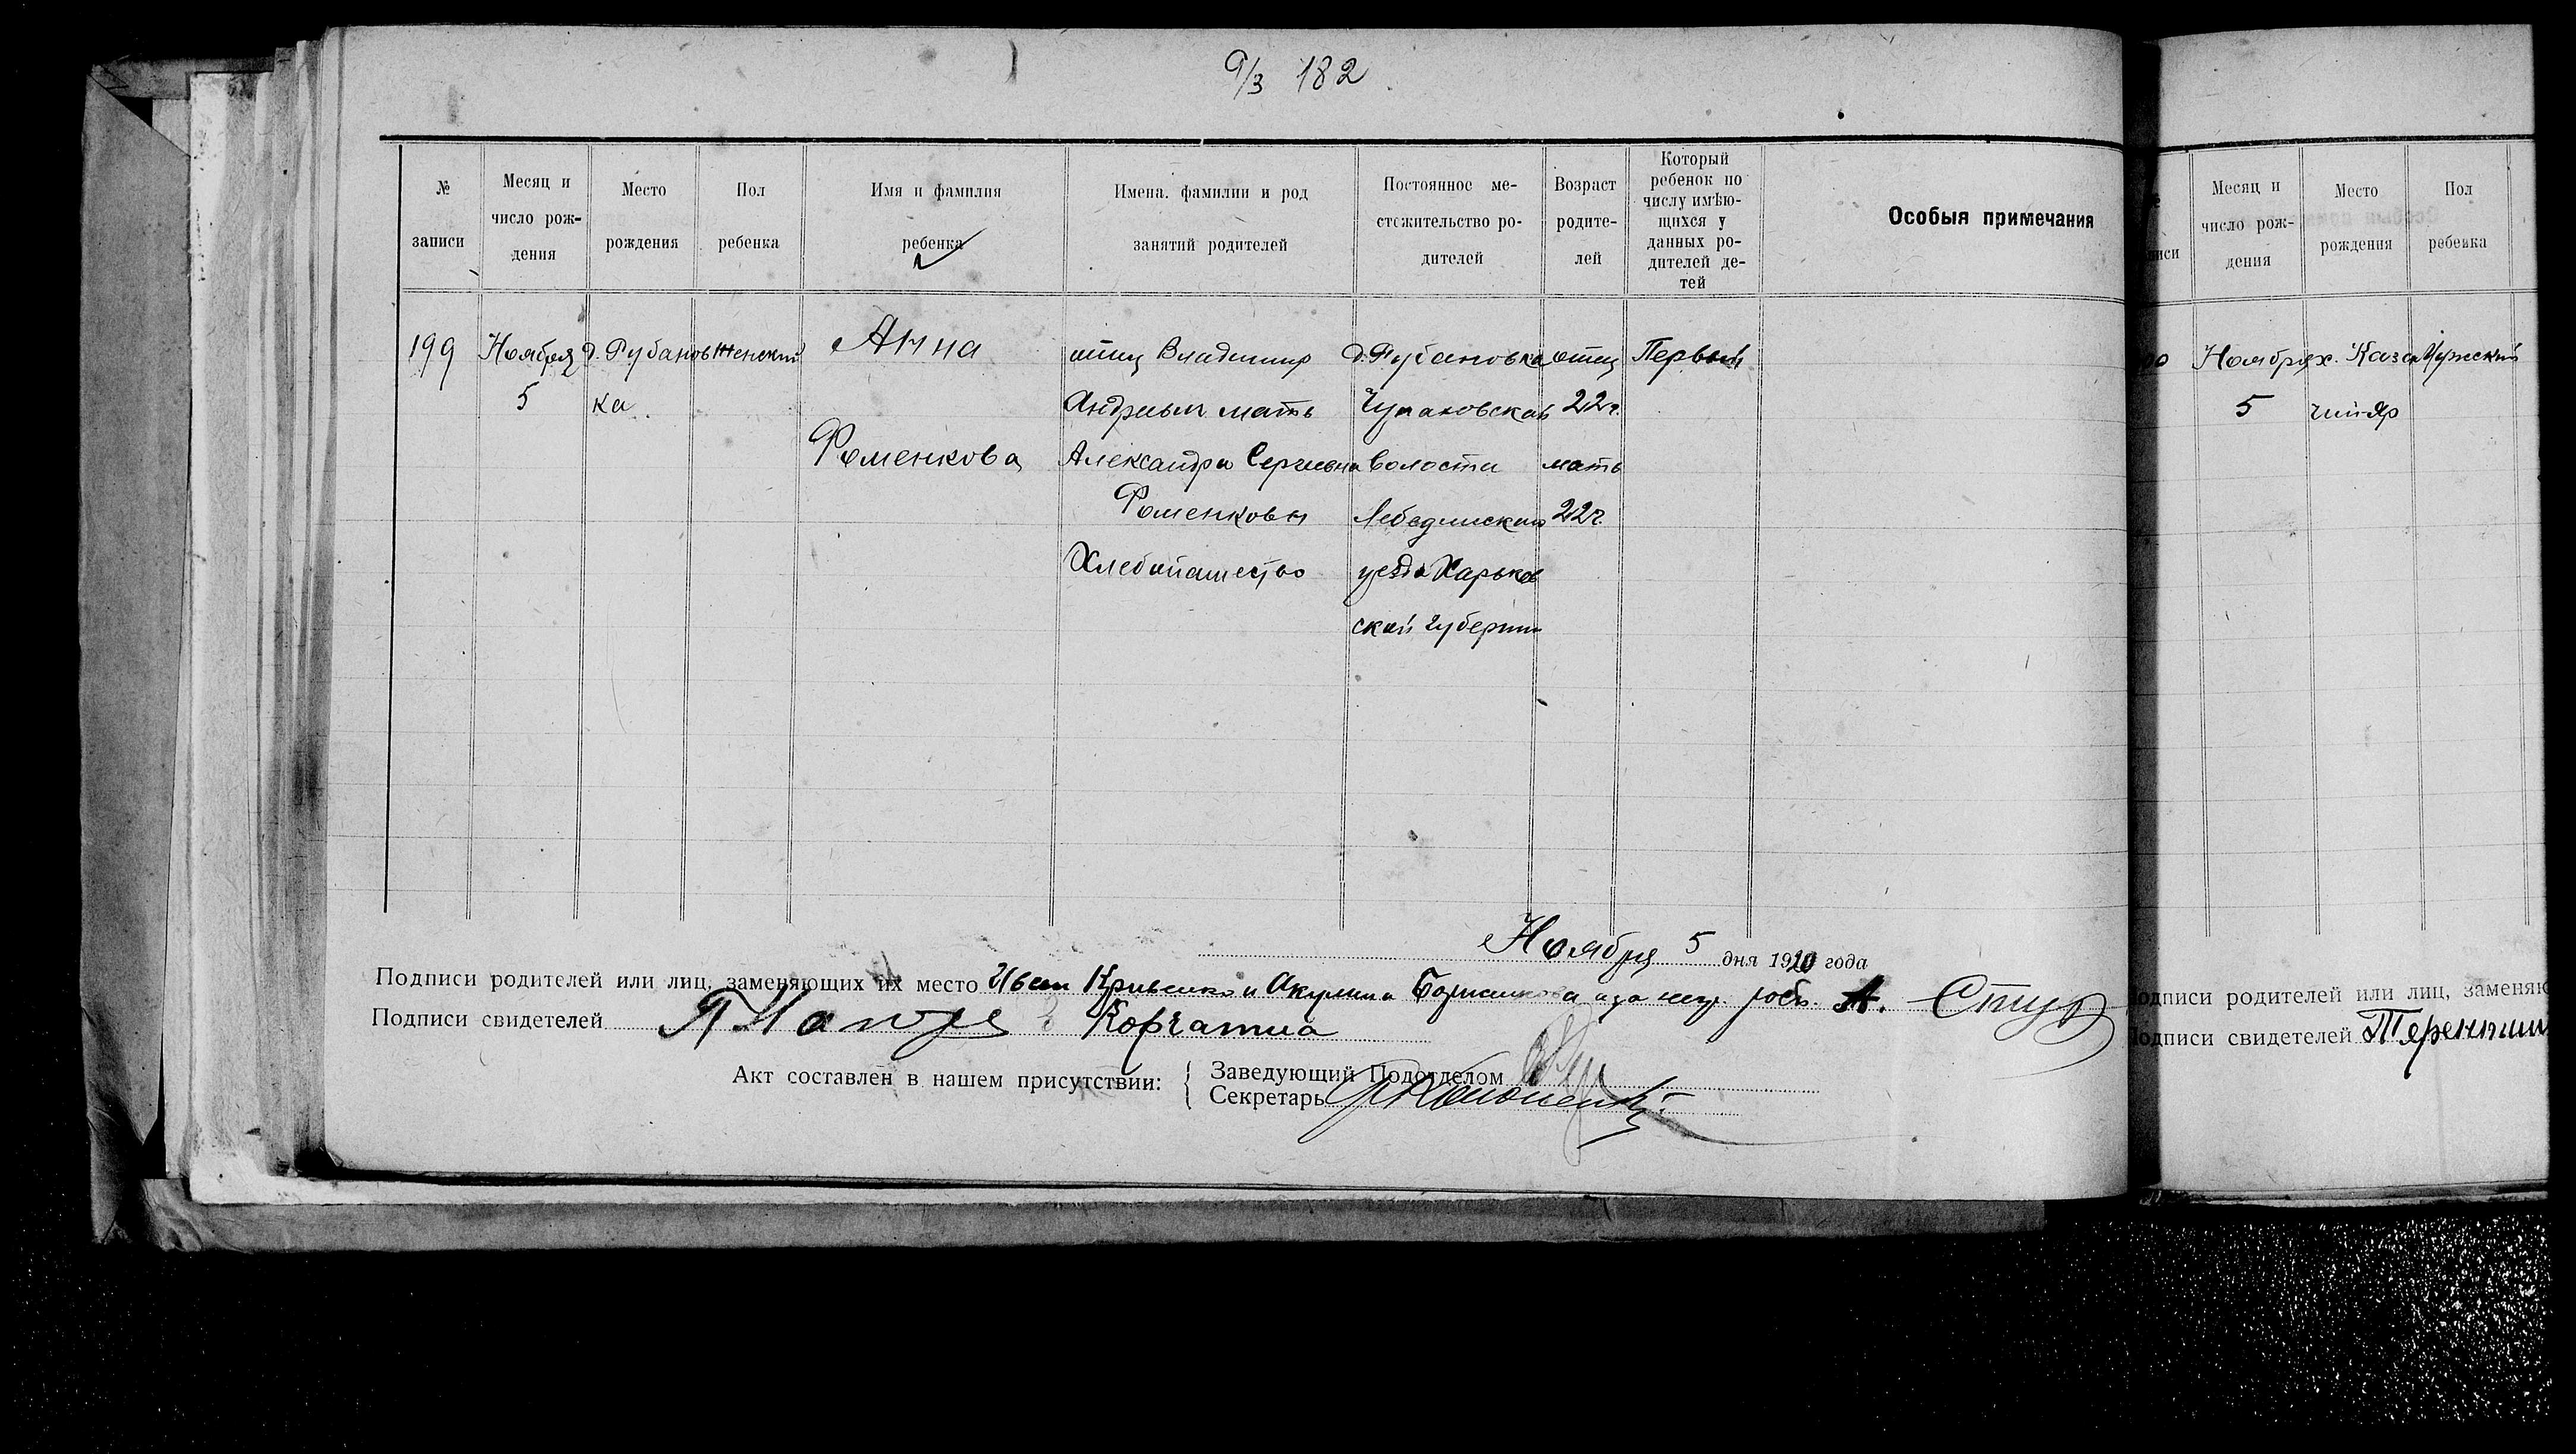 9/3 182
№ записи
Месяц и число рож-дения
Место рождения
Пол ребенка
Имя и фамилия ребенка
Имена, фамилии и род занятий родителей
Постоянное ме-стожительство ро-дителей
Возраст родите-лей
Который ребенок по числу имѣю-щихся у данных ро-дителей де-тей
Особыя примечания
199
Ноября
5
д. Рубанов
ка
Женский
Анна
Фоменкова
отец Владимир
мать
Александра Сергиевна
Фоменковы
д. Рубановка
Чупаховской
волости
Лебединскаго
уезда Харьков
ской губернии
отец
22 г.
мать
22 г.
Первый
Ноября 5 дня 1920 года
Подписи родителей или лиц, заменяющих их место Иван Кривенко и Акулина
Подписи свидетелей
Акт составлен в нашем присутствии:
Заведующий Подотделом
Секретарь
Месяц и число рож-дения
Место рождения
Пол ребенка
Ноября
5
х. Казачий-Яр
Мужеский
одписи родителей или лиц, заменяю
одписи свидетелей